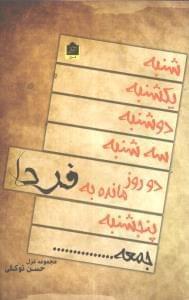 شنبه
یکشنبه
دوشنبه
سه شنبه
دو روز مانده به فردا
پنجشنبه
جمعه...............
مجموعه غزل
حسن توکلی